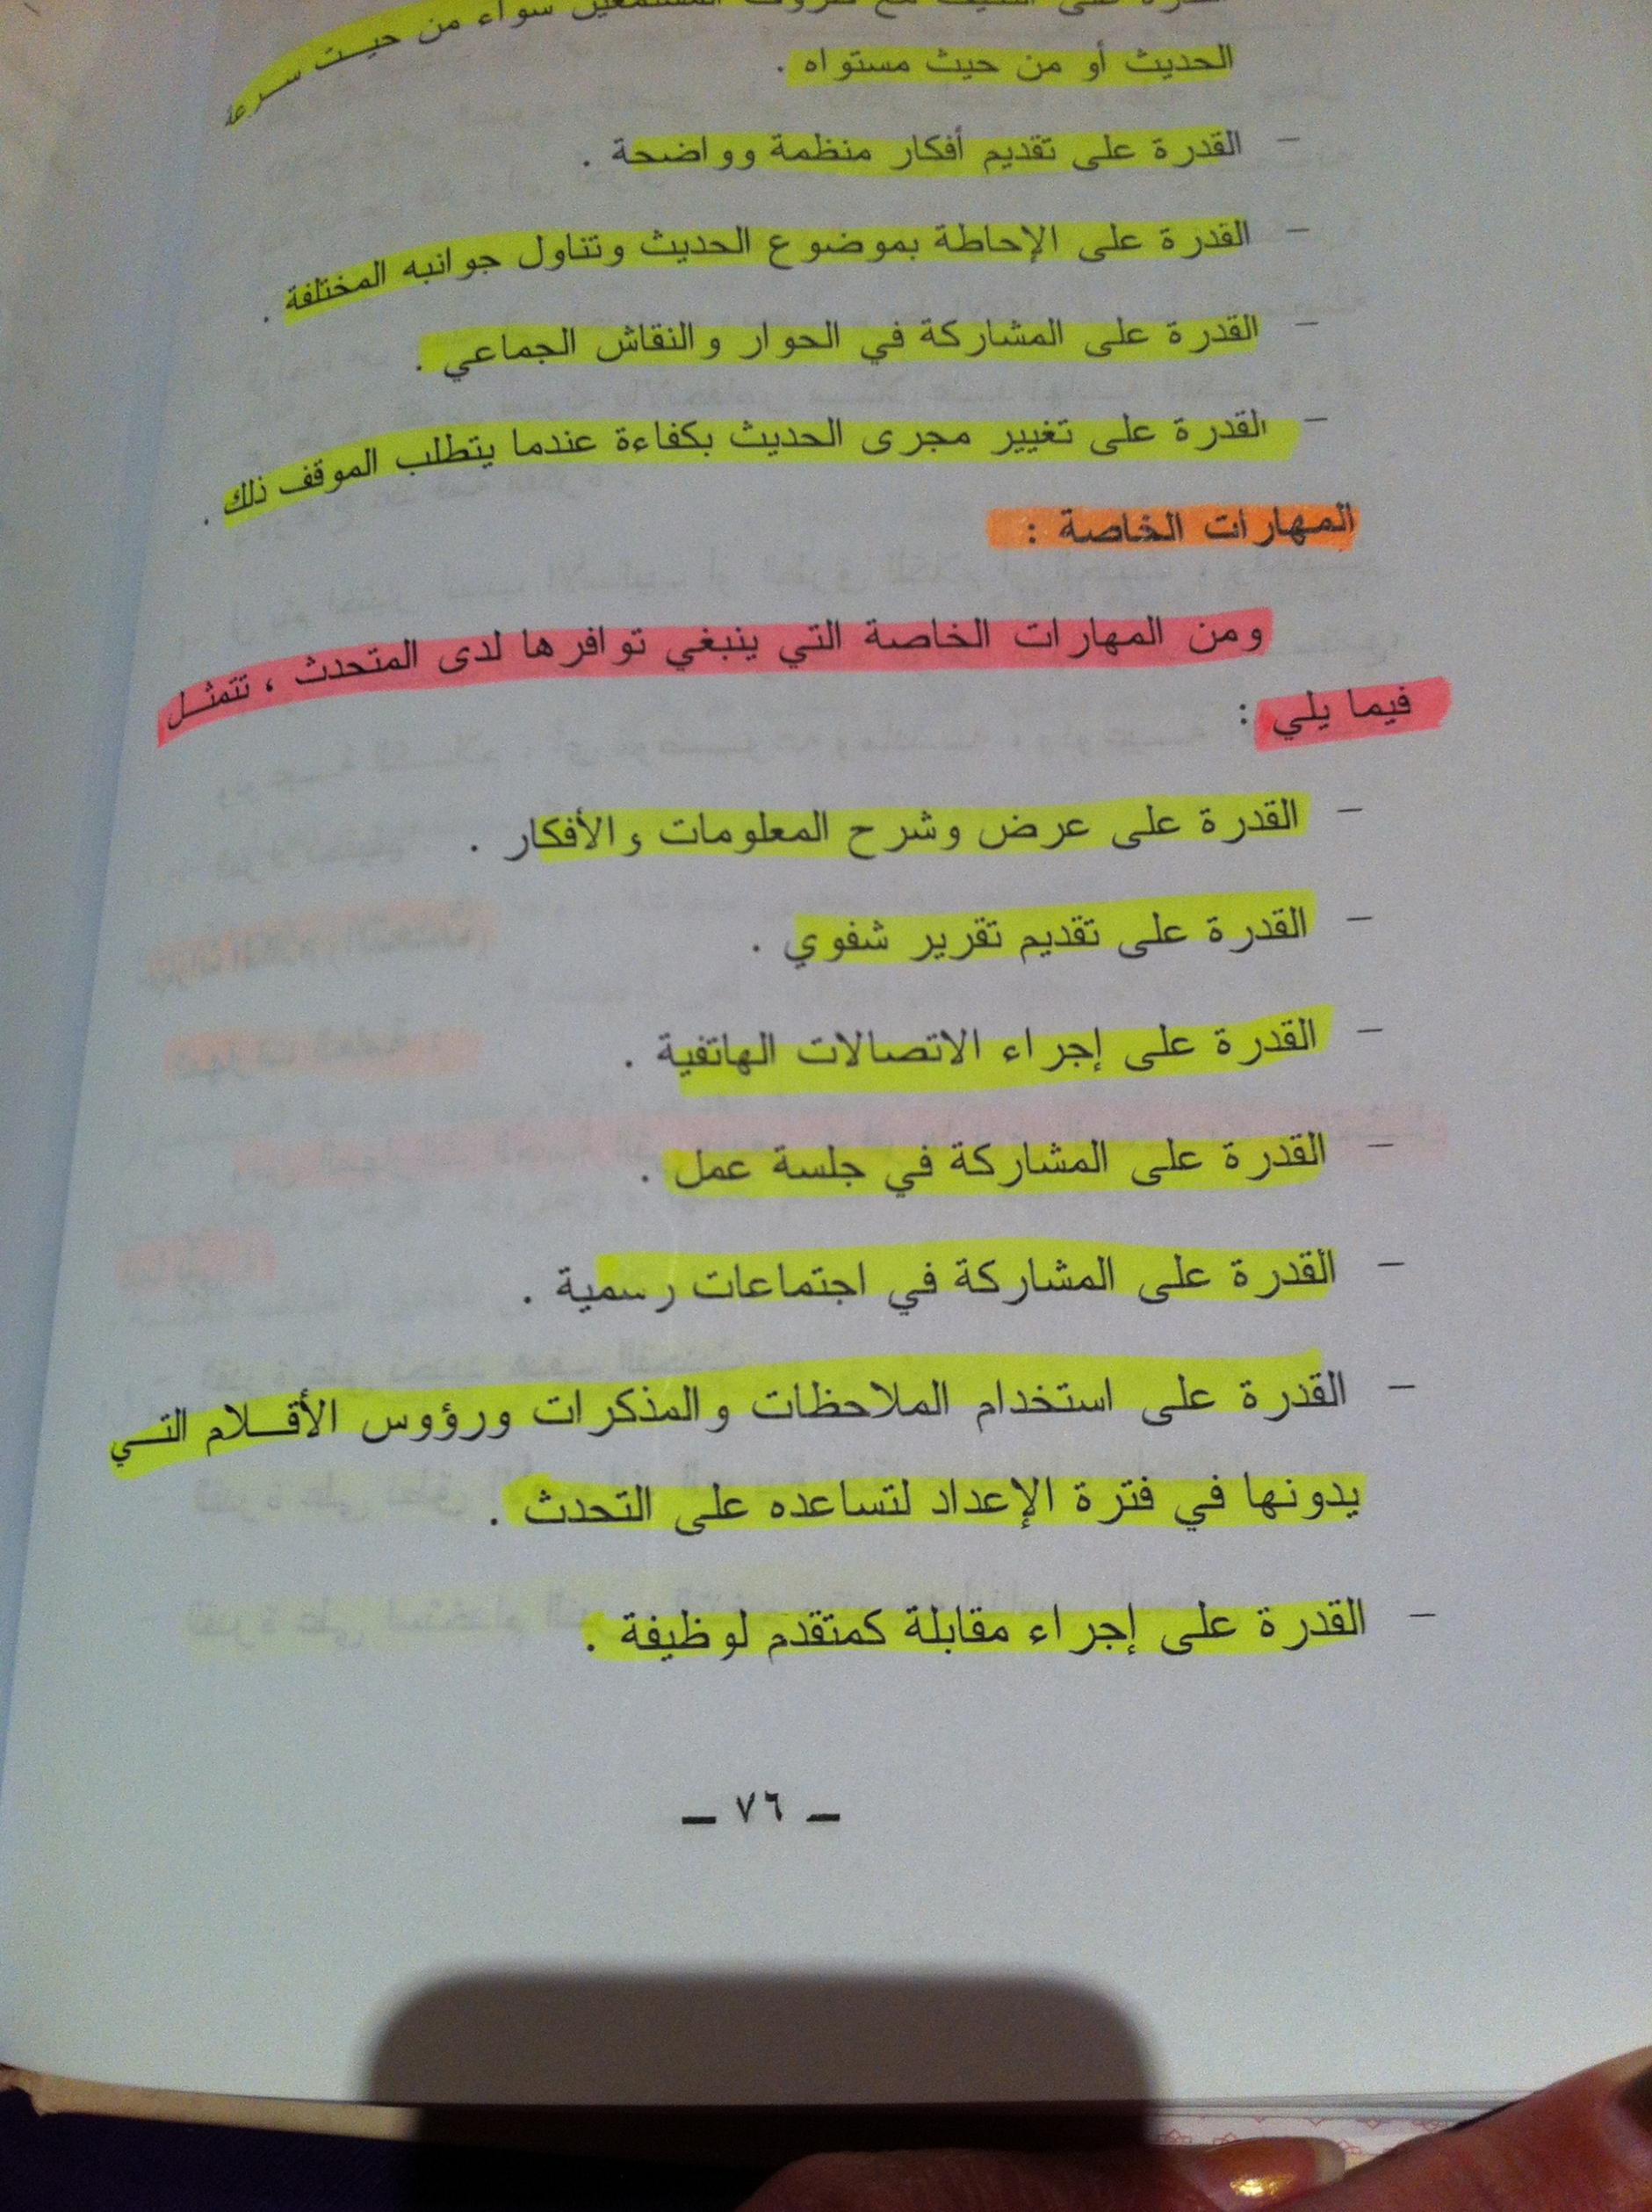 سواء من حيث سرعة
الحديث أو من حيث مستواه .
– القدرة على تقديم أفكار منظمة وواضحة .
– القدرة على الإحاطة بموضوع الحديث وتناول جوانبه المختلفة .
– القدرة على المشاركة في الحوار والنقاش الجماعي .
– القدرة على تغيير مجرى الحديث بكفاءة عندما يتطلب الموقف ذلك .
المهارات الخاصة :
ومن المهارات الخاصة التي ينبغي توافرها لدى المتحدث ، تتمثل
فيما يلي :
– القدرة على عرض وشرح المعلومات والأفكار .
– القدرة على تقديم تقرير شفوي .
– القدرة على إجراء الاتصالات الهاتفية .
– القدرة على المشاركة في جلسة عمل .
– القدرة على المشاركة في اجتماعات رسمية .
– القدرة على استخدام الملاحظات والمذكرات ورؤوس الأقلام التي
يدونها في فترة الإعداد لتساعده على التحدث .
– القدرة على إجراء مقابلة كمتقدم لوظيفة .
– ٧٦ –